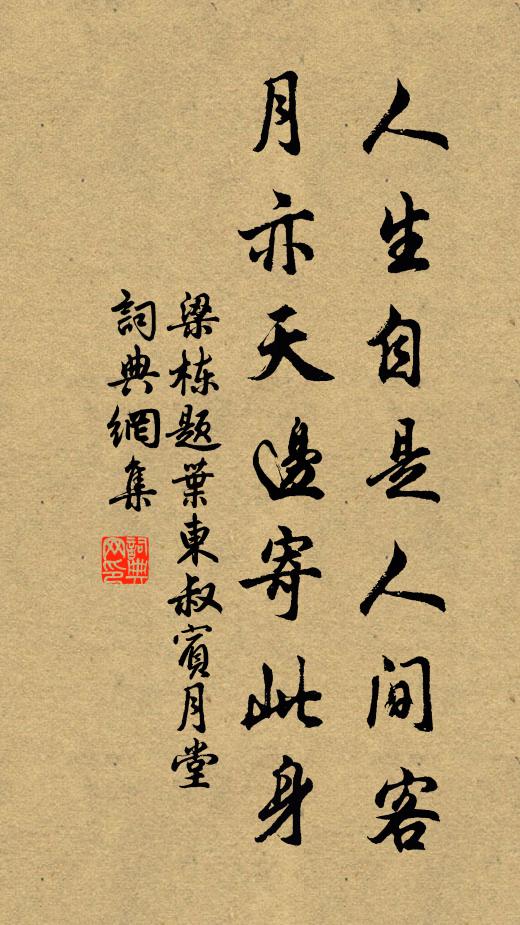 人生自是人间客
月亦天邊寄此身
梁栋题葉東叔賓月堂
詞典網集
詞典网印